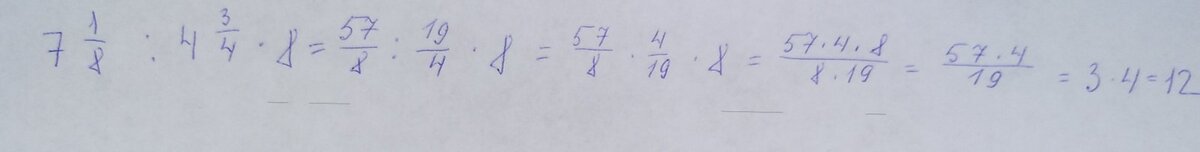 7 1/8 : 4 3/4 · 8 = 57/8 : 19/4 · 8 = 57/8 · 4/19 · 8 = 57·4·8/8·19 = 57·4/19 = 3·4=12